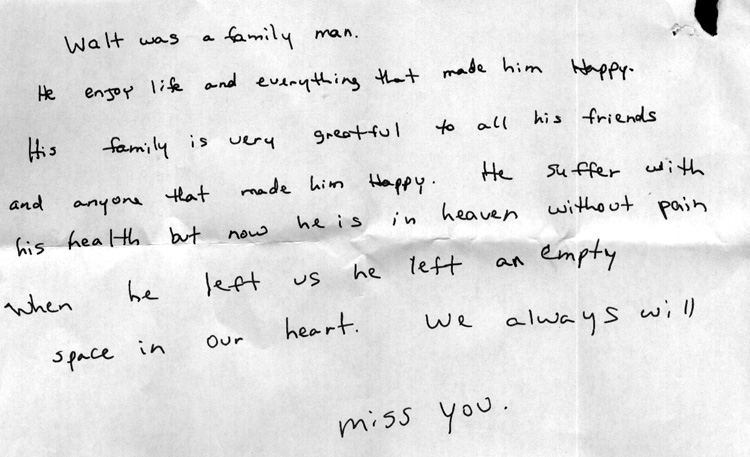 Walt was a family man.
He enjoy life and everything that made him Happy.
His family is very greatful to all his friends
and anyone that made him Happy. He suffer with
his health but now he is in heaven without pain
When he left us he left an empty
space in our heart. We always will
miss you.